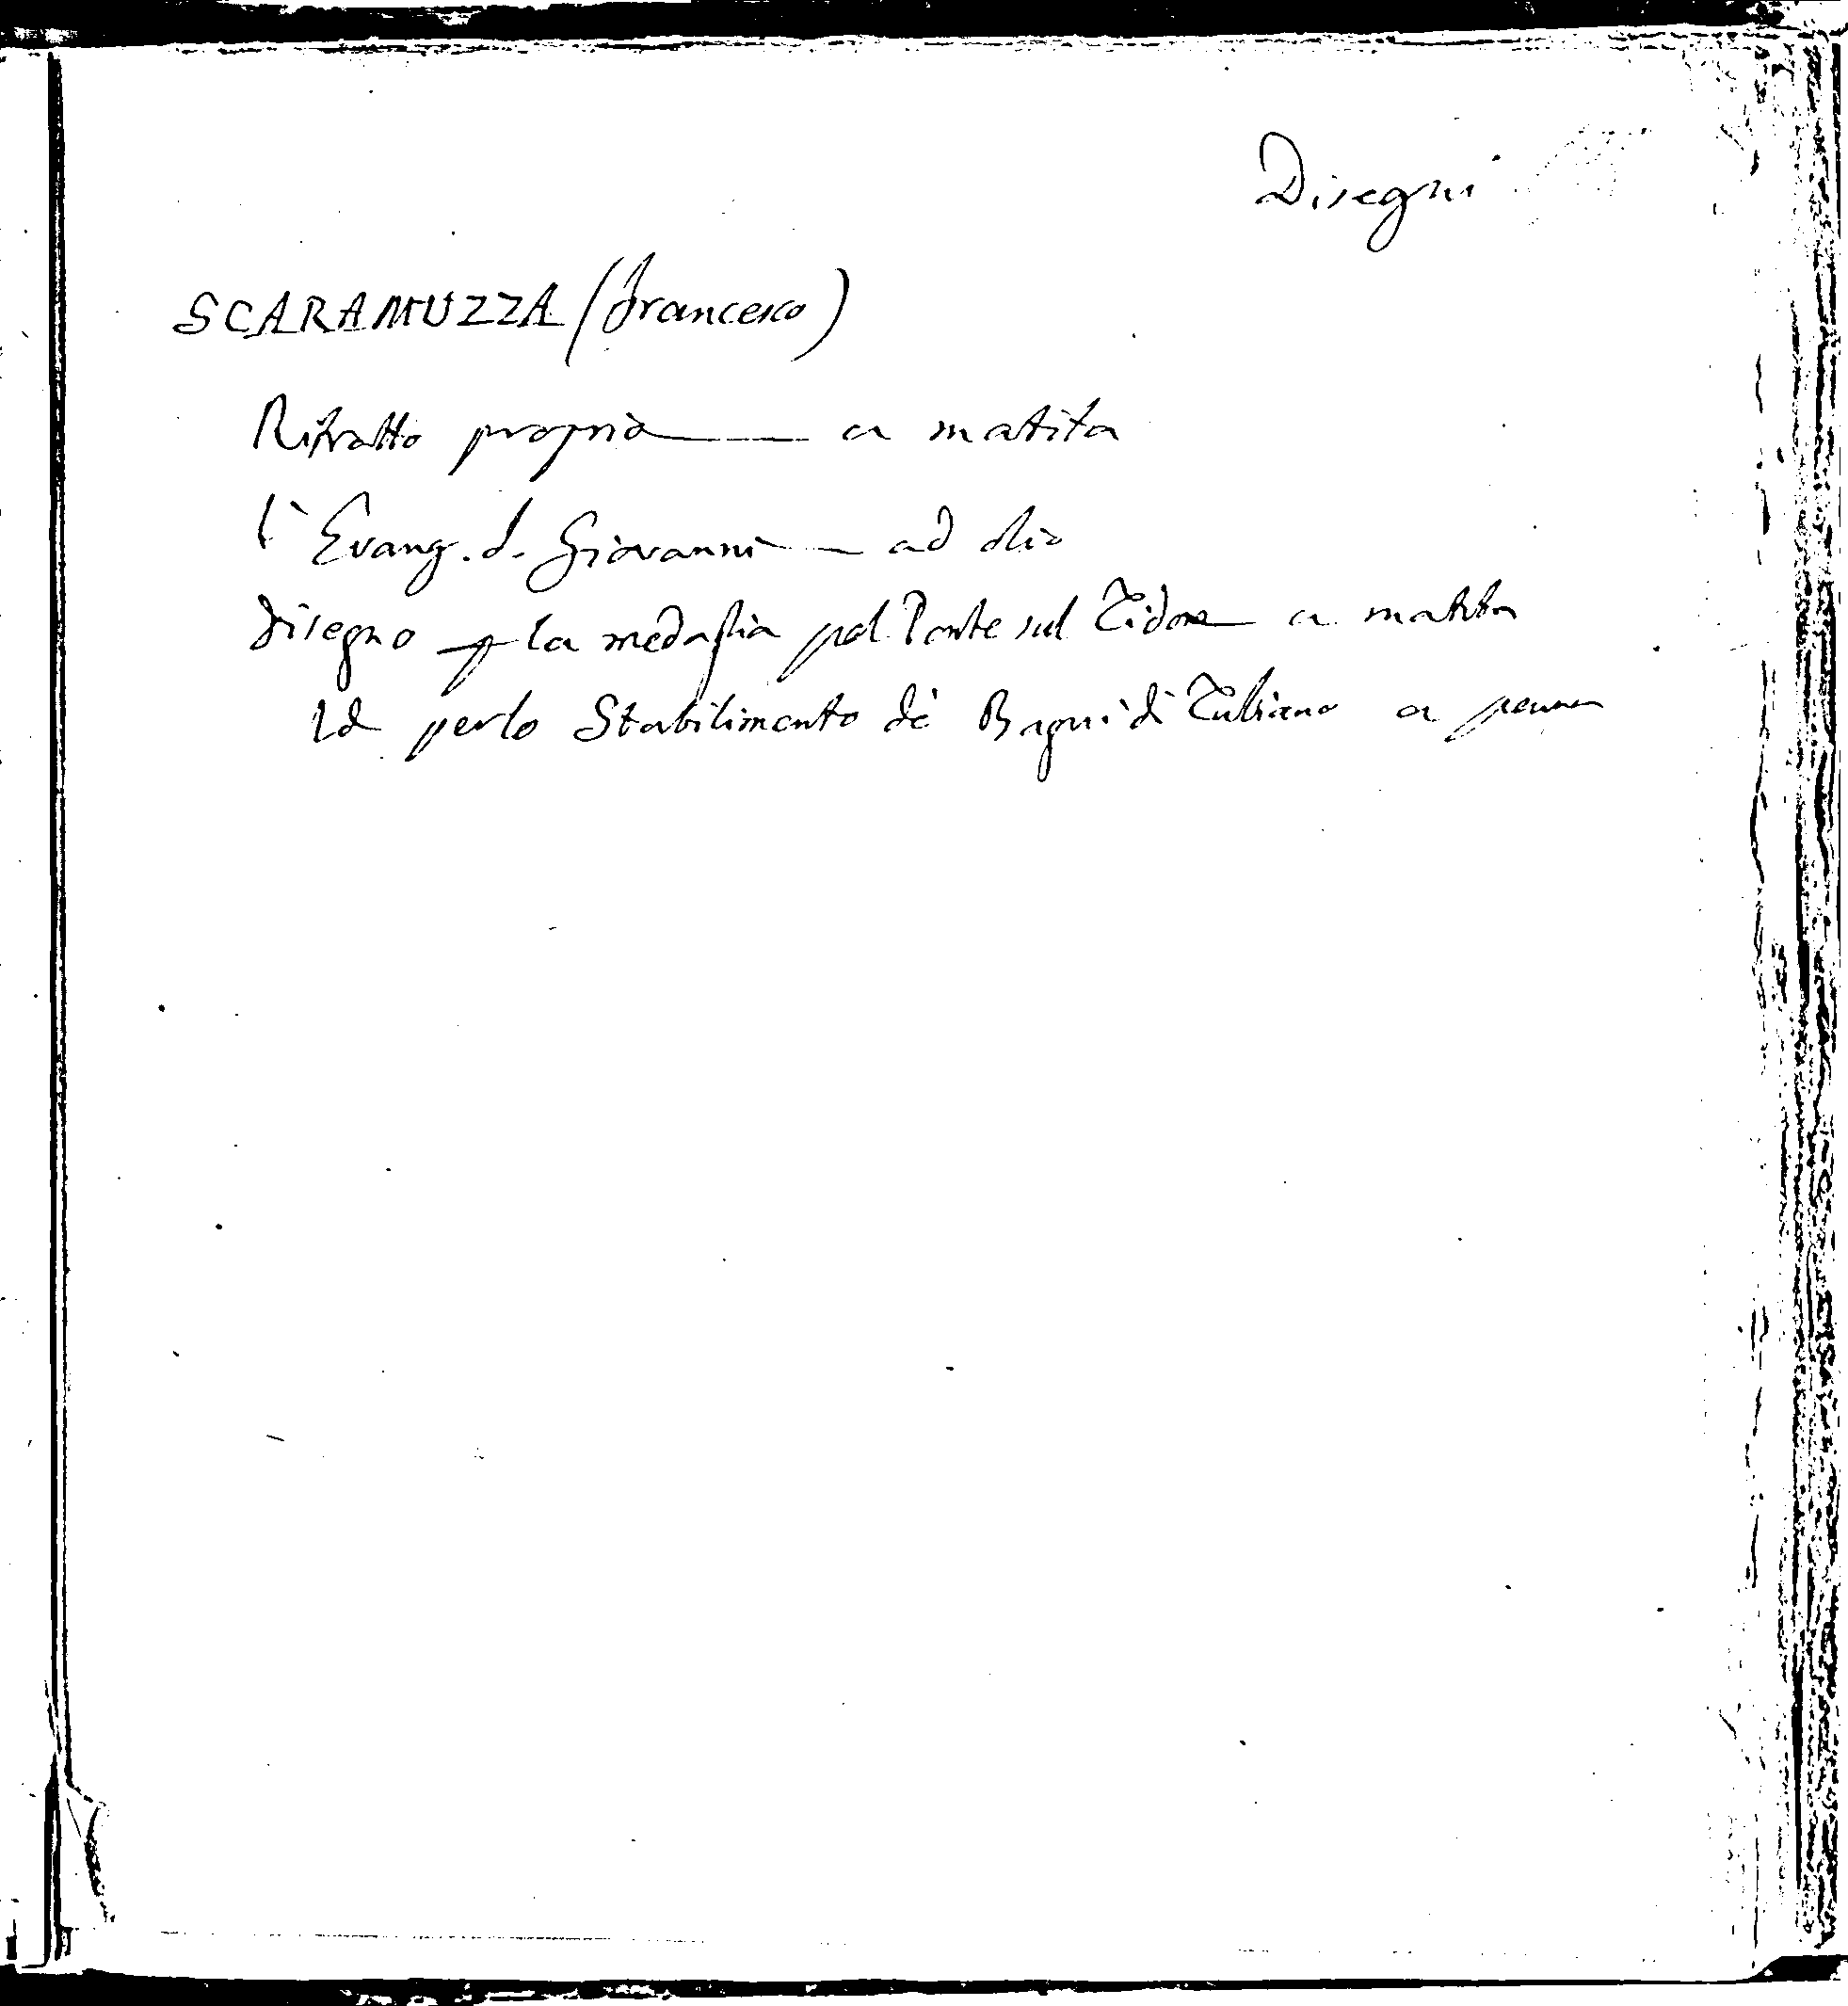 Disegni
SCARAMUZZA (Francesco)
Ritratto proprio — a matita
l'Evang. S. Giovanni — ad olio
Disegno p la medaglia pel Ponte sul Tidone a matita
Id per lo Stabilimento de' Bagni di Tabiano a penna